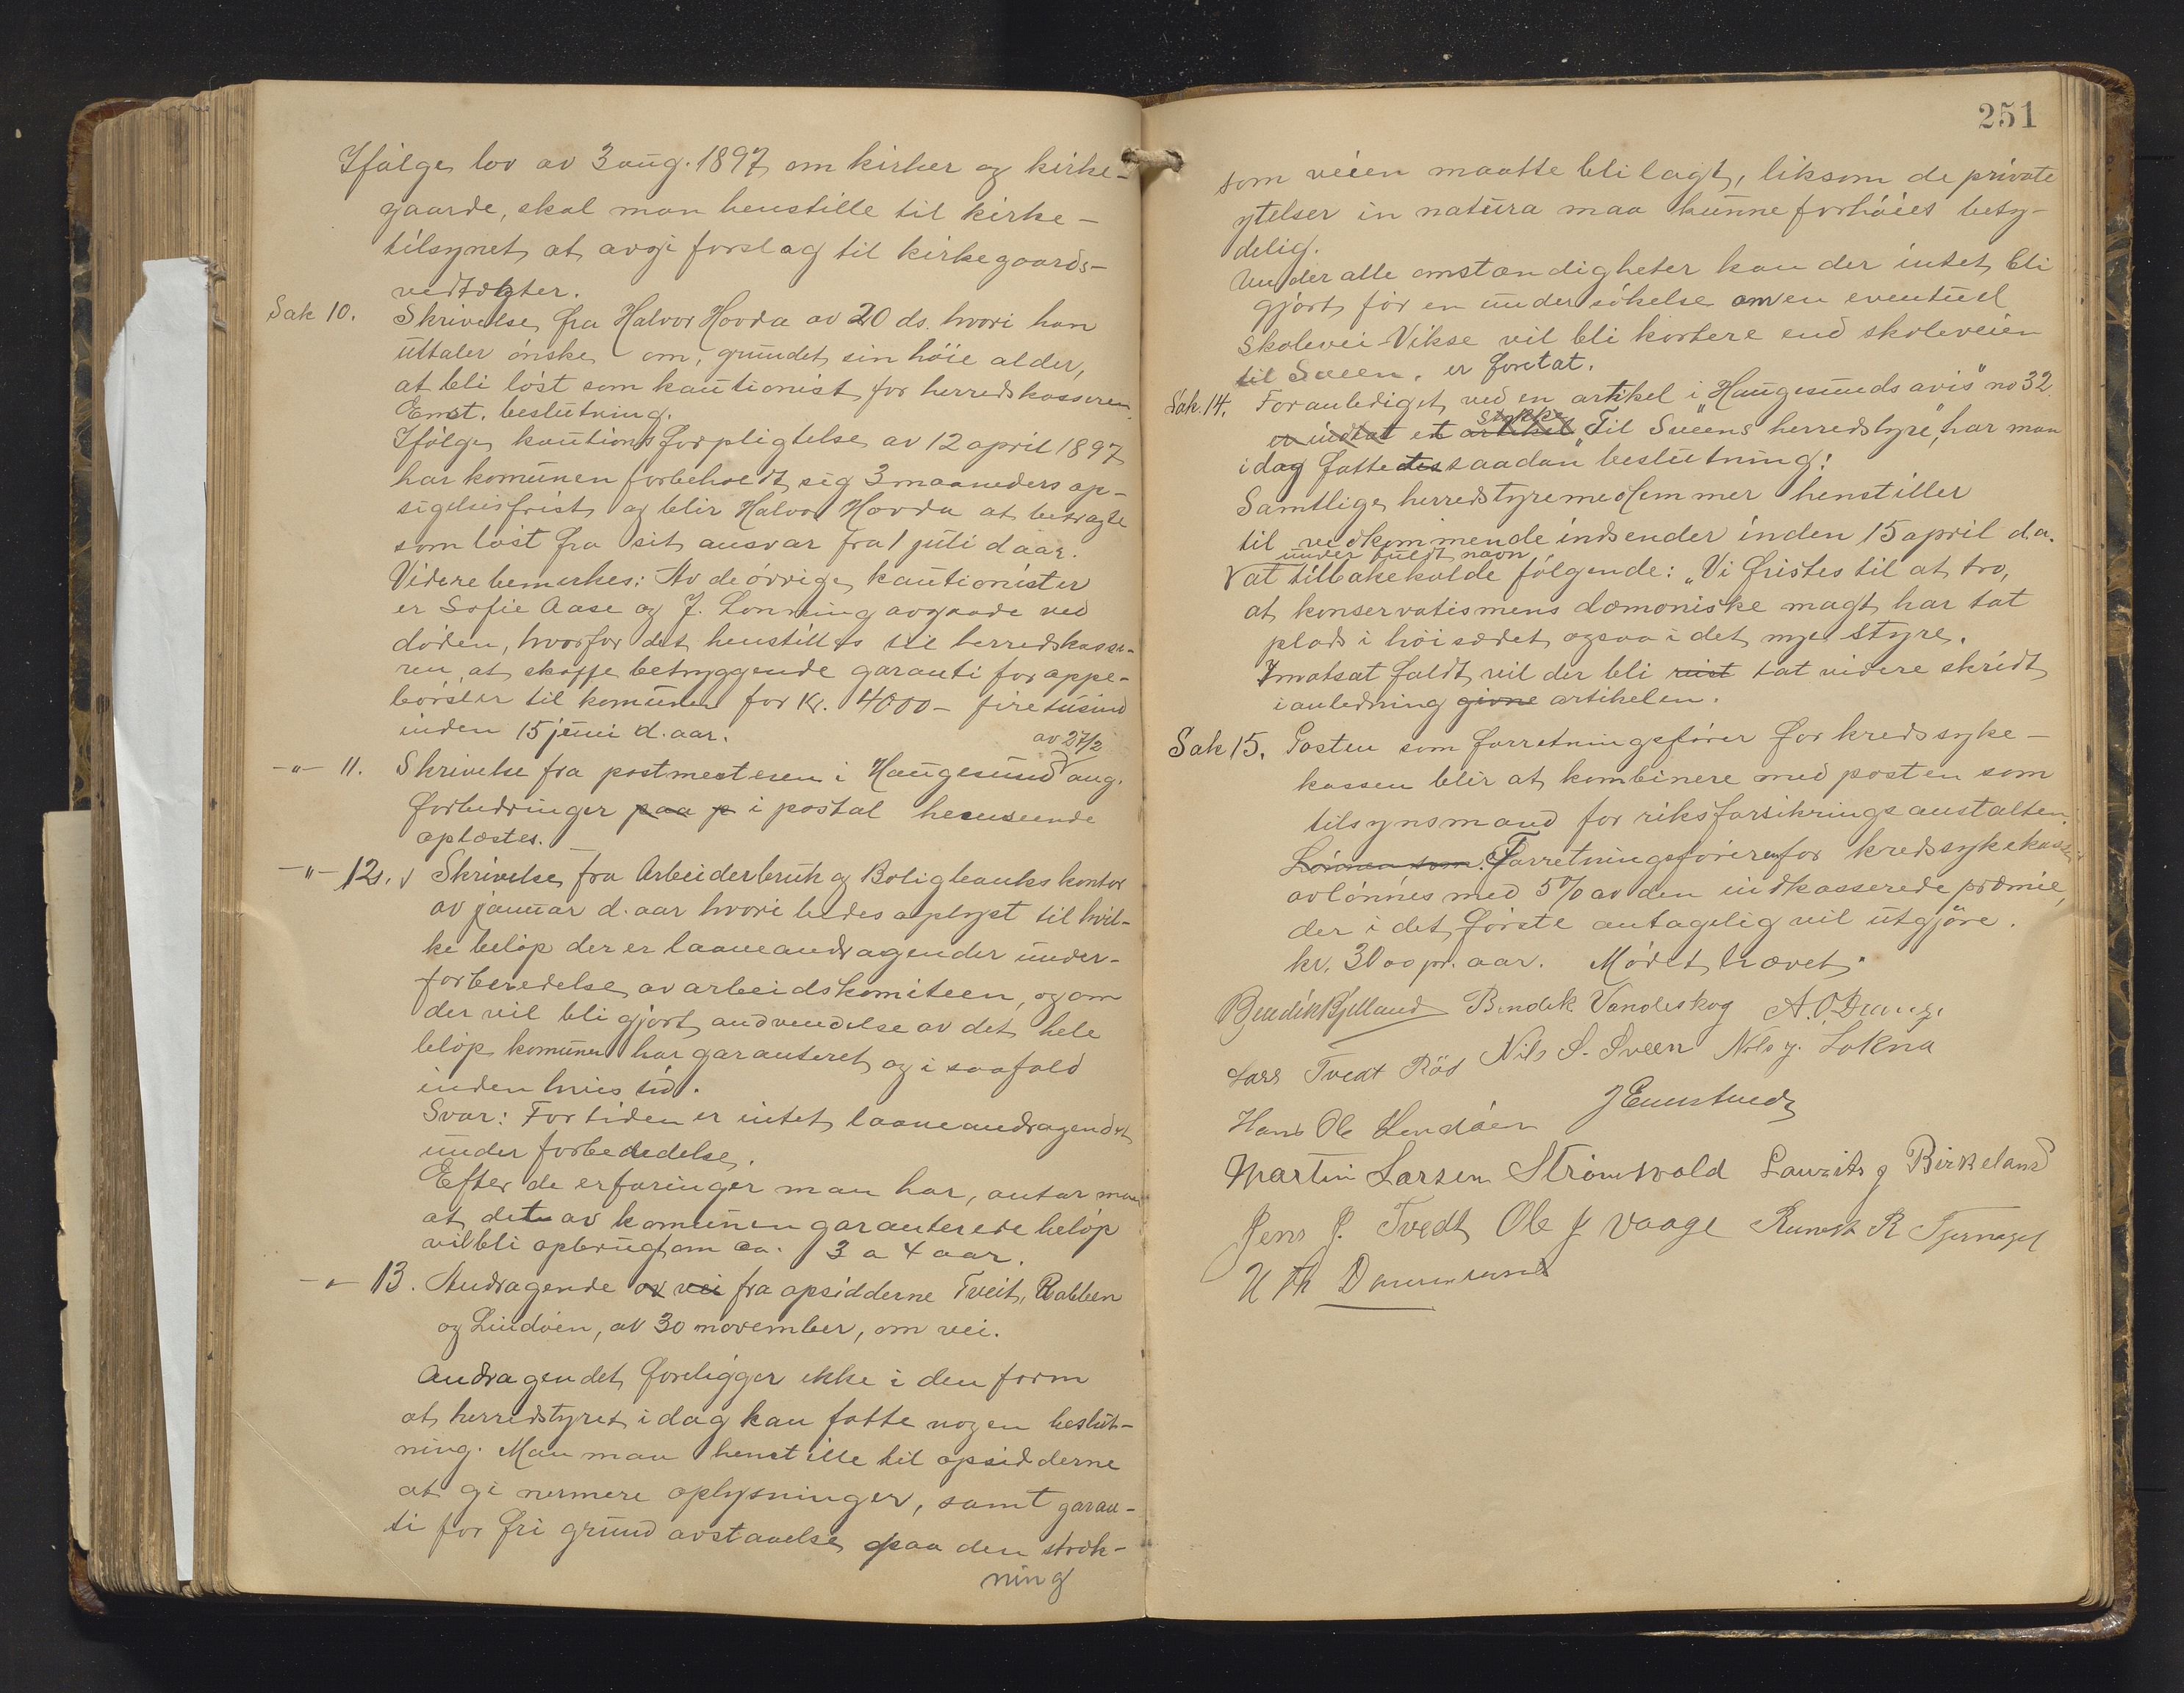 Ifølge lov av 3 aug. 1897 om kirker og kirke-
gaarde, skal man henstille til kirke-
tilsynet at avgi forslag til kirkegaards-
vedtægter.
Sak 10. Skrivelse fra Halvor Hovda av 20 ds. hvori han
uttaler ønske om, grundet sin høie alder,
at bli løst som kautionist for herredskasseren
Eenst. beslutning.
Ifølge kautionsforpligtelse av 12 april 1897
har komunen forbeholdt sig 3 maaneders op-
sigelsesfrist og blir Halvor Hovda at betragte
som løst fra sit ansvar fra 1 juli d aar.
Videre bemerkes: Av de øvrige kautionister
er Sofie Aase og J. Lønning avgaade ved
døden, hvorfor det henstilles til herredskasse-
ren at skaffe betryggende garanti for oppe-
børsler til komunen for Kr. 4000 - firetusind
inden 15 juni d. aar.
av 27/2
-"- 11. Skrivelse fra postmesteren i Haugesund ang.
forbedringer paa p i postal henseende
oplæstes.
-"- 12. Skrivelse fra Arbeiderbruk og Boligbanks kontor
av januar d. aar hvori bedes oplyst til hvil-
ke beløp der er laaneandragender under-
forberedelse av arbeidskomiteen, og om
der vil bli gjort andvendelse av det hele
beløp komunen har garanteret og i saafald
inden hvis tid.
Svar: For tiden er intet laaneandragendet
under forberedelse.
Efter de erfaringer man har, antar man
at det av komunen garanterede beløp
vil bli opbrugt om ca. 3 a 4 aar.
-"- 13. Andragende ov vei fra opsidderne Tveit, Rabben
og Lindøen, av 30 november, om vei.
Andragendet foreligger ikke i den form
at herredstyret idag kan fatte nogen beslut-
ning. Man maa henstille til opsidderne
at gi nermere oplysninger, samt garan-
ti for fri grund avstaaelse paa den stræk-
ning
251
som veien maatte bli lagt, liksom de private
ytelser in natura maa kunne forhøies bety-
delig.
Under alle omstændigheter kan der intet bli
gjort før en undersøkelse om en eventuel
skolevei Vikse vil bli kortere end skoleveien
til Sveen, er foretat.
Sak. 14. Foranlediget ved en artikel i "Haugesunds avis" no 32
stykke
er indtat et artikel "Til Sveens herredstyre", har man
idag fattedes saadan beslutning:
Samtlige herredstyremedlemmer henstiller
til vedkommende indsender inden 15 april d.a.
under fuldt navn
at tilbakekalde følgende: "Vi fristes til at tro,
at konservatismens dæmoniske magt har tat
plads i høisædet ogsaa i det nye styre.
I motsat faldt vil der bli tat videre skridt
i anledning givne artikelen.
Sak 15. Posten som forretningsfører for kredssyke-
kassen blir at kombinere med posten som
tilsynsmand for riksforsikringsanstalten.
Lønnen som. Forretningsføreren for kredssykekassen
avlønnes med 5% av den indkasserede præmie,
der i det første antagelig vil utgjøre.
kr. 300 pr. aar. Mødet hævet.
Bendik Kjelland Bendik Vandeskog A. O.
Lars Tvedt Röd Nils S. Sveen Nils J. Lokna
Hans Ole Lindøen
Martin Larsen Strømsvold Lauritz J Birkeland
Jens J. Tvedt Ole J Vaage R Tjernagel